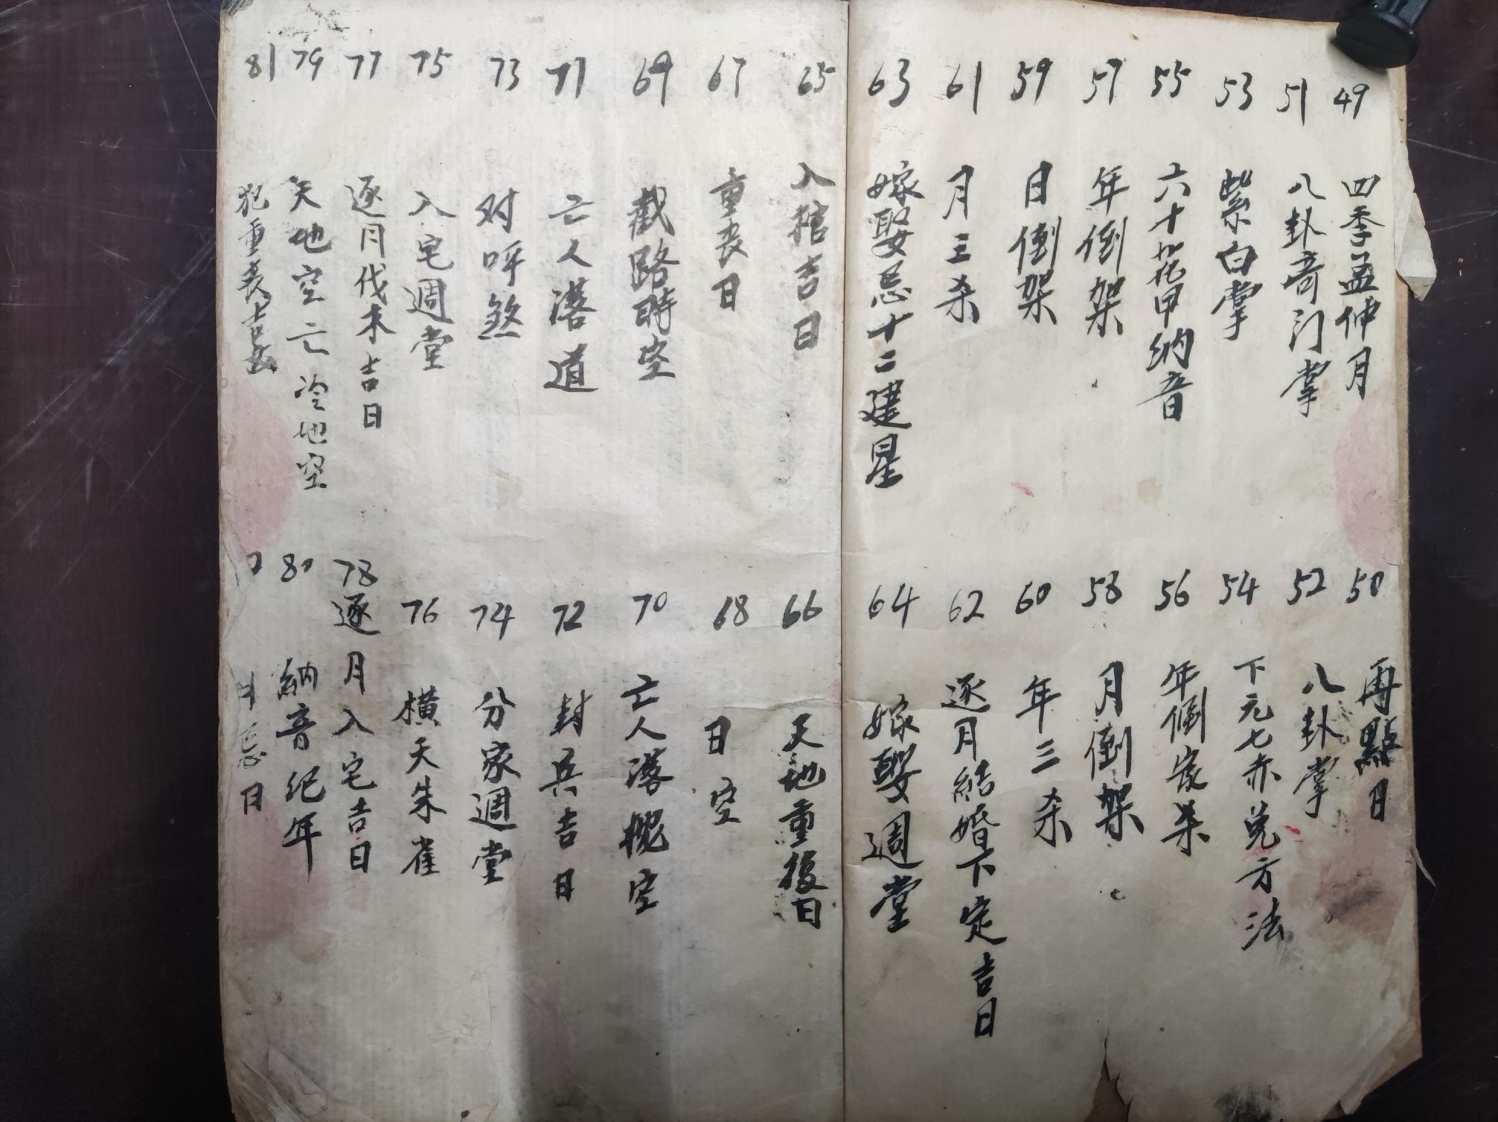 49 四季孟仲月
50 再點日
51 八卦奇门掌
52 八卦掌
53 紫白掌
54 下元七赤兑方法
55 六十花甲納音
56 年倒家杀
57 年倒架
58 月倒架
59 日倒架
60 年三杀
61 月三杀
62 逐月結婚下定吉日
63 嫁娶忌十二建星
64 嫁娶週堂
65 入棺吉日
66 天地重復日
67 重丧日
68 日空
69 截路時空
70 亡人落 空
71 亡人落道
72 封兵吉日
73 对呼煞
74 分家週堂
75 入宅週堂
76 橫天朱雀
77 逐月伐木吉日
78 逐月入宅吉日
79 天地空亡冷地空
80 納音纪年
81 犯重丧
忌日